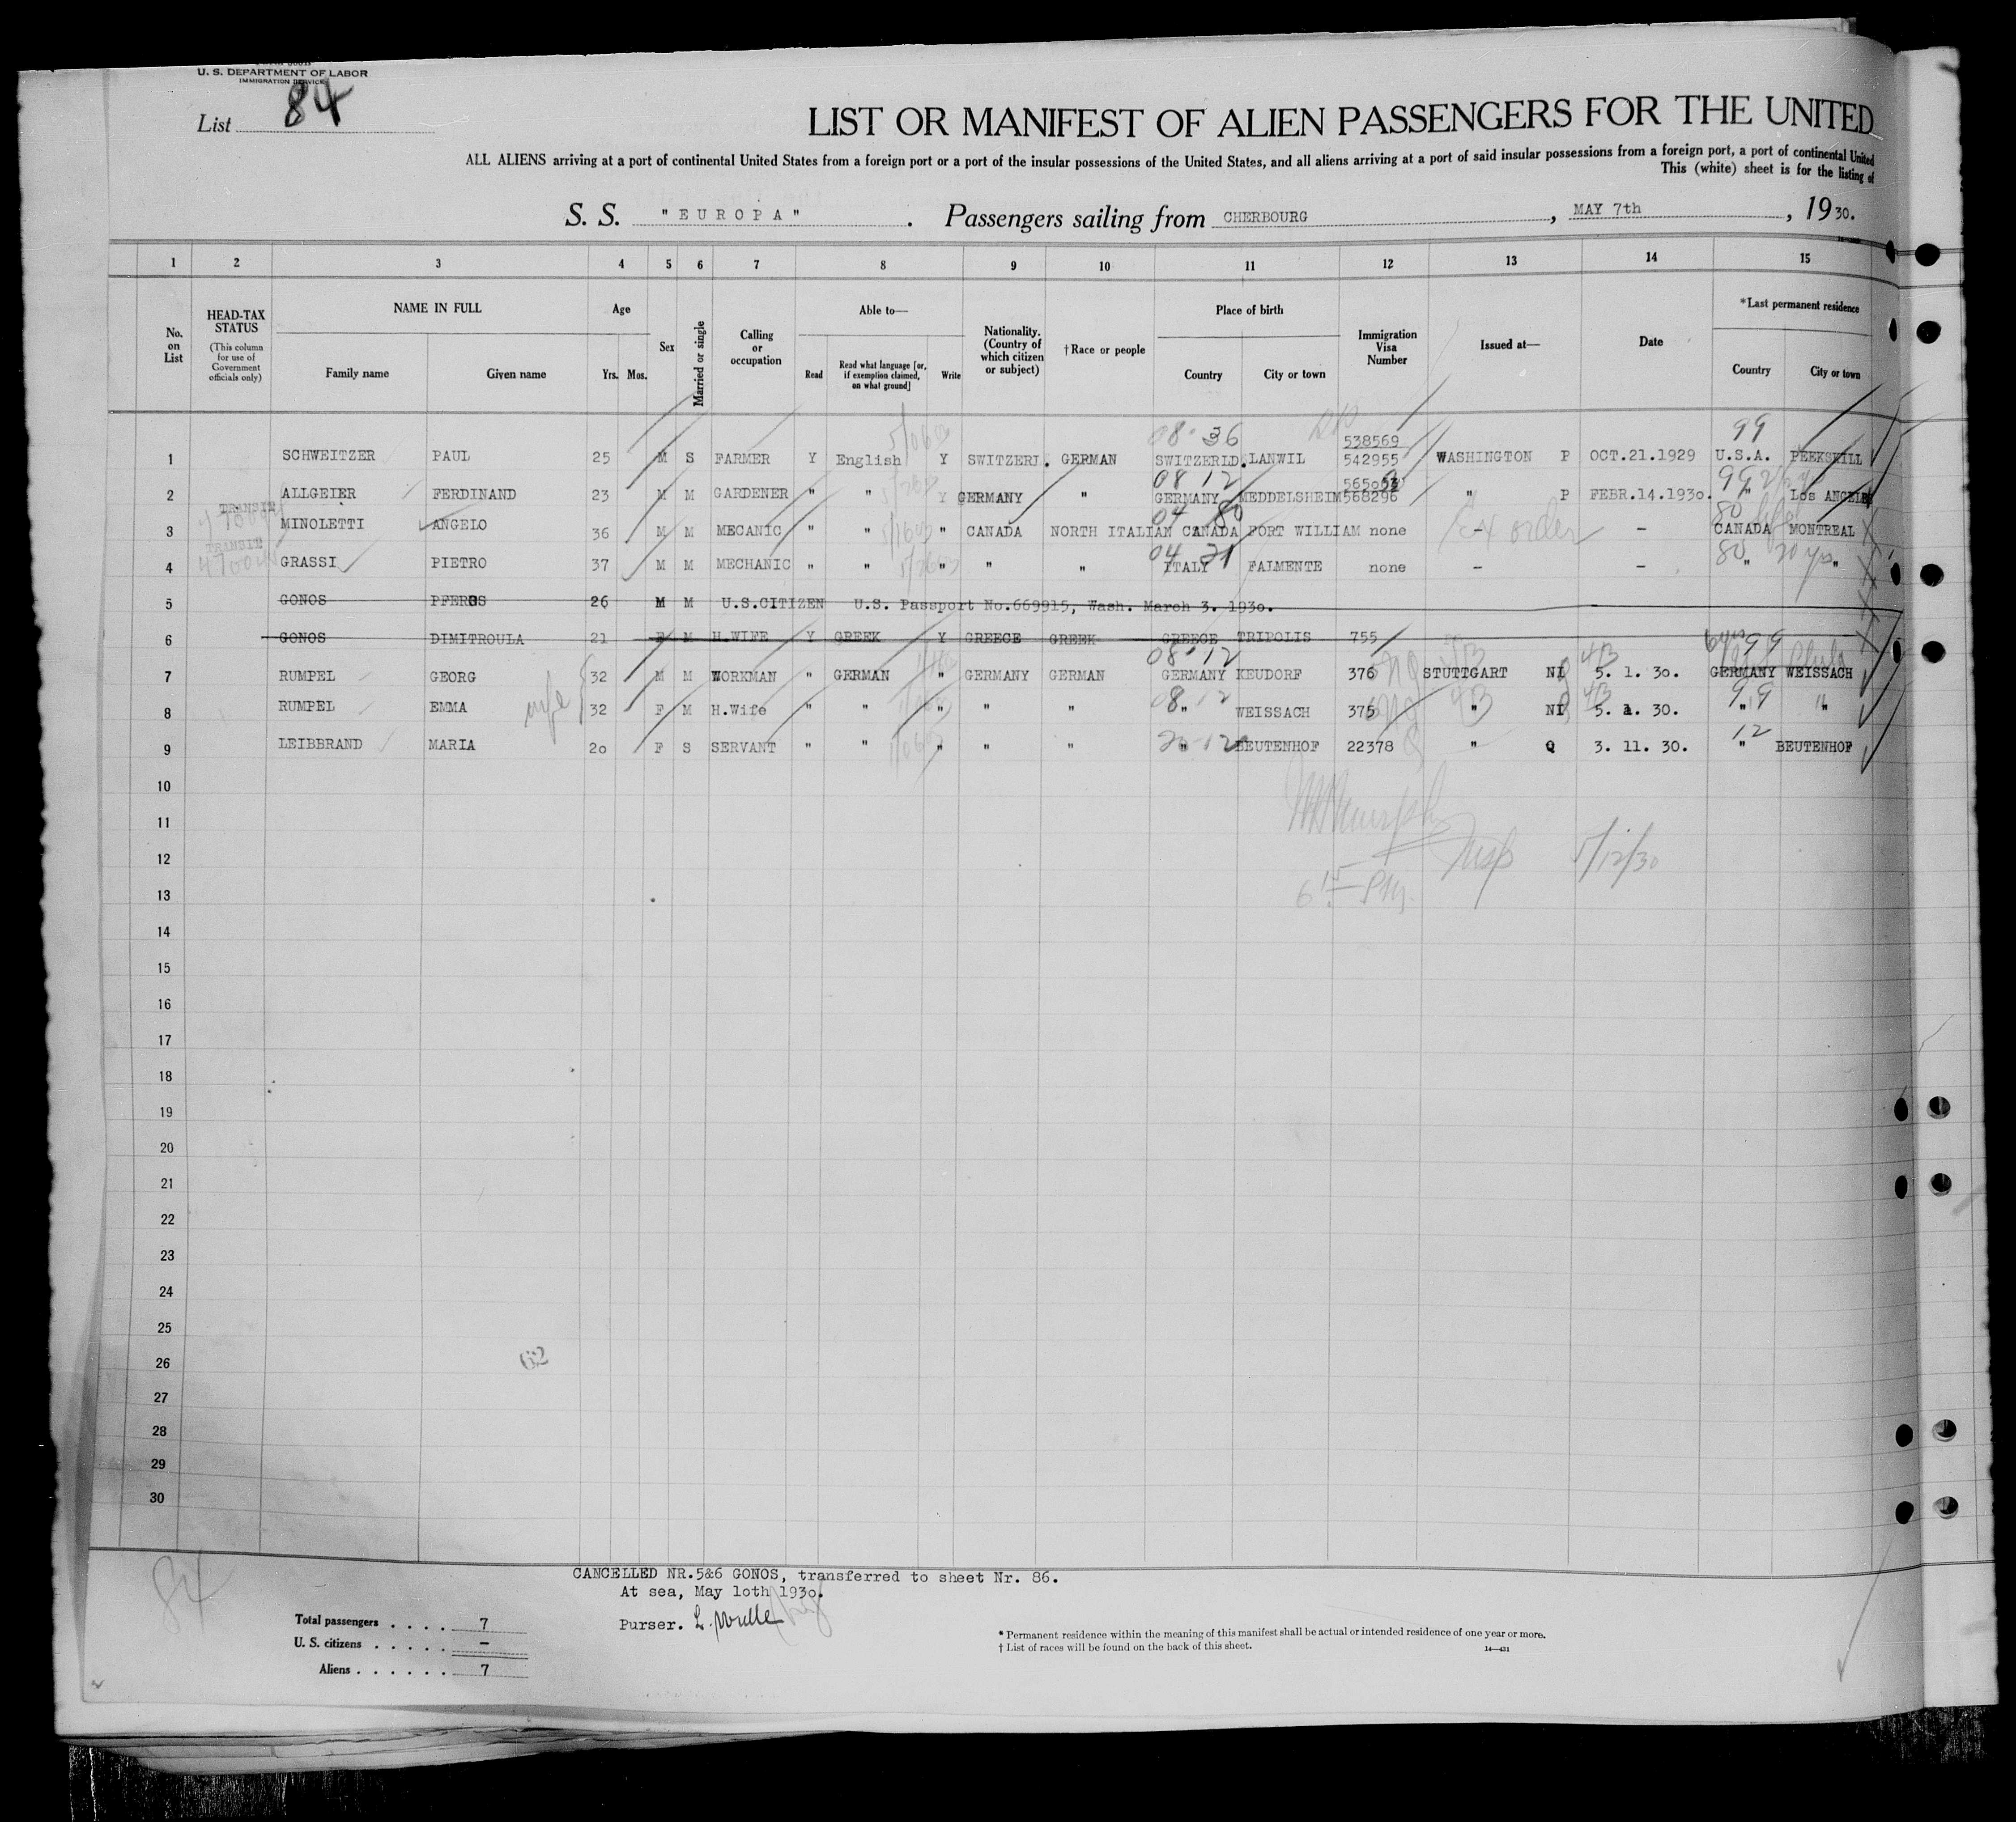 U. S. DEPARTMENT OF LABOR
IMMIGRATION SERVICE
List 84
LIST OR MANIFEST OF ALIEN PASSENGERS FOR THE UNITED
ALL ALIENS arriving at a port of continental United States from a foreign port or a port of the insular possessions of the United States, and all aliens arriving at a port of said insular possessions from a foreign port, a port of continental United
This (white) sheet is for the listing of
S. S. "EUROPA". Passengers sailing from CHERBOURG, MAY 7th, 1930.
1 2 3 4 5 6 7 8 9 10 11 12 13 14 15
No. on List
HEAD-TAX STATUS (This column for use of Government officials only)
NAME IN FULL
Family name Given name
Age
Yrs. Mos.
Sex
Married or single
Calling or occupation
Able to—
Read Read what language [or, if exemption claimed, on what ground] Write
Nationality. (Country of which citizen or subject)
†Race or people
Place of birth
Country City or town
Immigration Visa Number
Issued at—
Date
*Last permanent residence
Country City or town
08 36 538569 99
1 SCHWEITZER PAUL 25 M S FARMER Y English Y SWITZERL. GERMAN SWITZERLD. LANWIL 542955 WASHINGTON P OCT.21.1929 U.S.A. PEEKSKILL
08 12
2 ALLGEIER FERDINAND 23 M M GARDENER " " Y GERMANY " GERMANY MEDDELSHEIM 568296 " P FEBR.14.1930. " LOS ANGELES
TRANSIT 04 80 80
3 MINOLETTI ANGELO 36 M M MECANIC " " " CANADA NORTH ITALIAN CANADA FORT WILLIAM none - Ex order - CANADA MONTREAL
TRANSIT 04 21 80 20 yrs
4 GRASSI PIETRO 37 M M MECHANIC " " " " " ITALY FALMENTE none - - " "
5 GONOS PFEROS 26 M M U.S.CITIZEN U.S. Passport No.669915, Wash. March 3. 1930.
6 GONOS DIMITROULA 21 F M H.WIFE Y GREEK Y GREECE GREEK GREECE TRIPOLIS 755
08 12 4B 99
7 RUMPEL GEORG 32 M M WORKMAN " GERMAN " GERMANY GERMAN GERMANY KEUDORF 376 STUTTGART NI 5. 1. 30. GERMANY WEISSACH
wife 08 12 4B 4B 99
8 RUMPEL EMMA 32 F M H.Wife " " " " " " WEISSACH 375 " NI 5. 1. 30. " "
12 12
9 LEIBBRAND MARIA 20 F S SERVANT " " " " " " BEUTENHOF 22378 " Q 3. 11. 30. " BEUTENHOF
10
11
12
5/12/30
13
6 15 PM.
14
15
16
17
18
19
20
21
22
23
24
25
26
62
27
28
29
30
84
CANCELLED NR.5&6 GONOS, transferred to sheet Nr. 86.
At sea, May 10th 1930.
Purser.
Total passengers . . . . 7
U. S. citizens . . . . . -
Aliens . . . . . . 7
* Permanent residence within the meaning of this manifest shall be actual or intended residence of one year or more.
† List of races will be found on the back of this sheet.
14—431